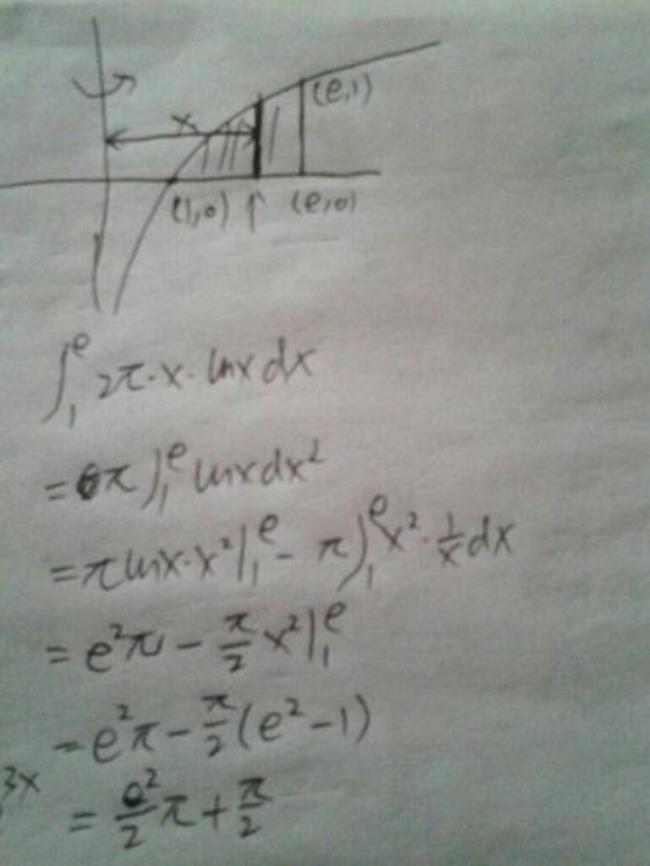 x
(e,1)
(1,0) (e,0)
∫₁ᵉ 2π·x·lnxdx
= π∫₁ᵉ lnxdx²
= πlnx·x²|₁ᵉ - π∫₁ᵉ x²·1/x dx
= e²π - π/2 x²|₁ᵉ
= e²π - π/2(e²-1)
3x
= e²/2 π + π/2